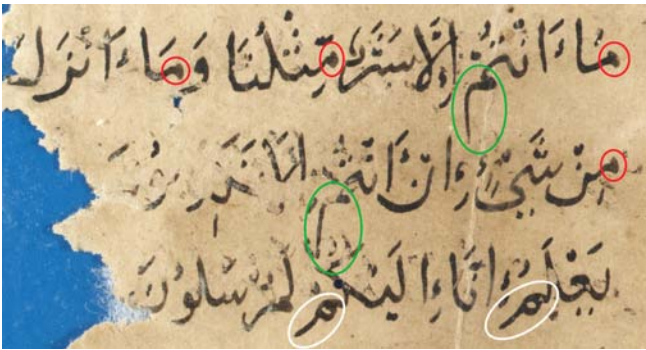 مَاءَانْتُمُ إِلَّا بَشَرٌ مِّثْلُنَا وَمَاءَانْزَلَ
مِنْ شَيْءٍ اِنْ اَنْتُمُ اِلَّا
يَعْلَمُ اِنَّاءِالَيْكُمْ لَمُرْسَلُونَ